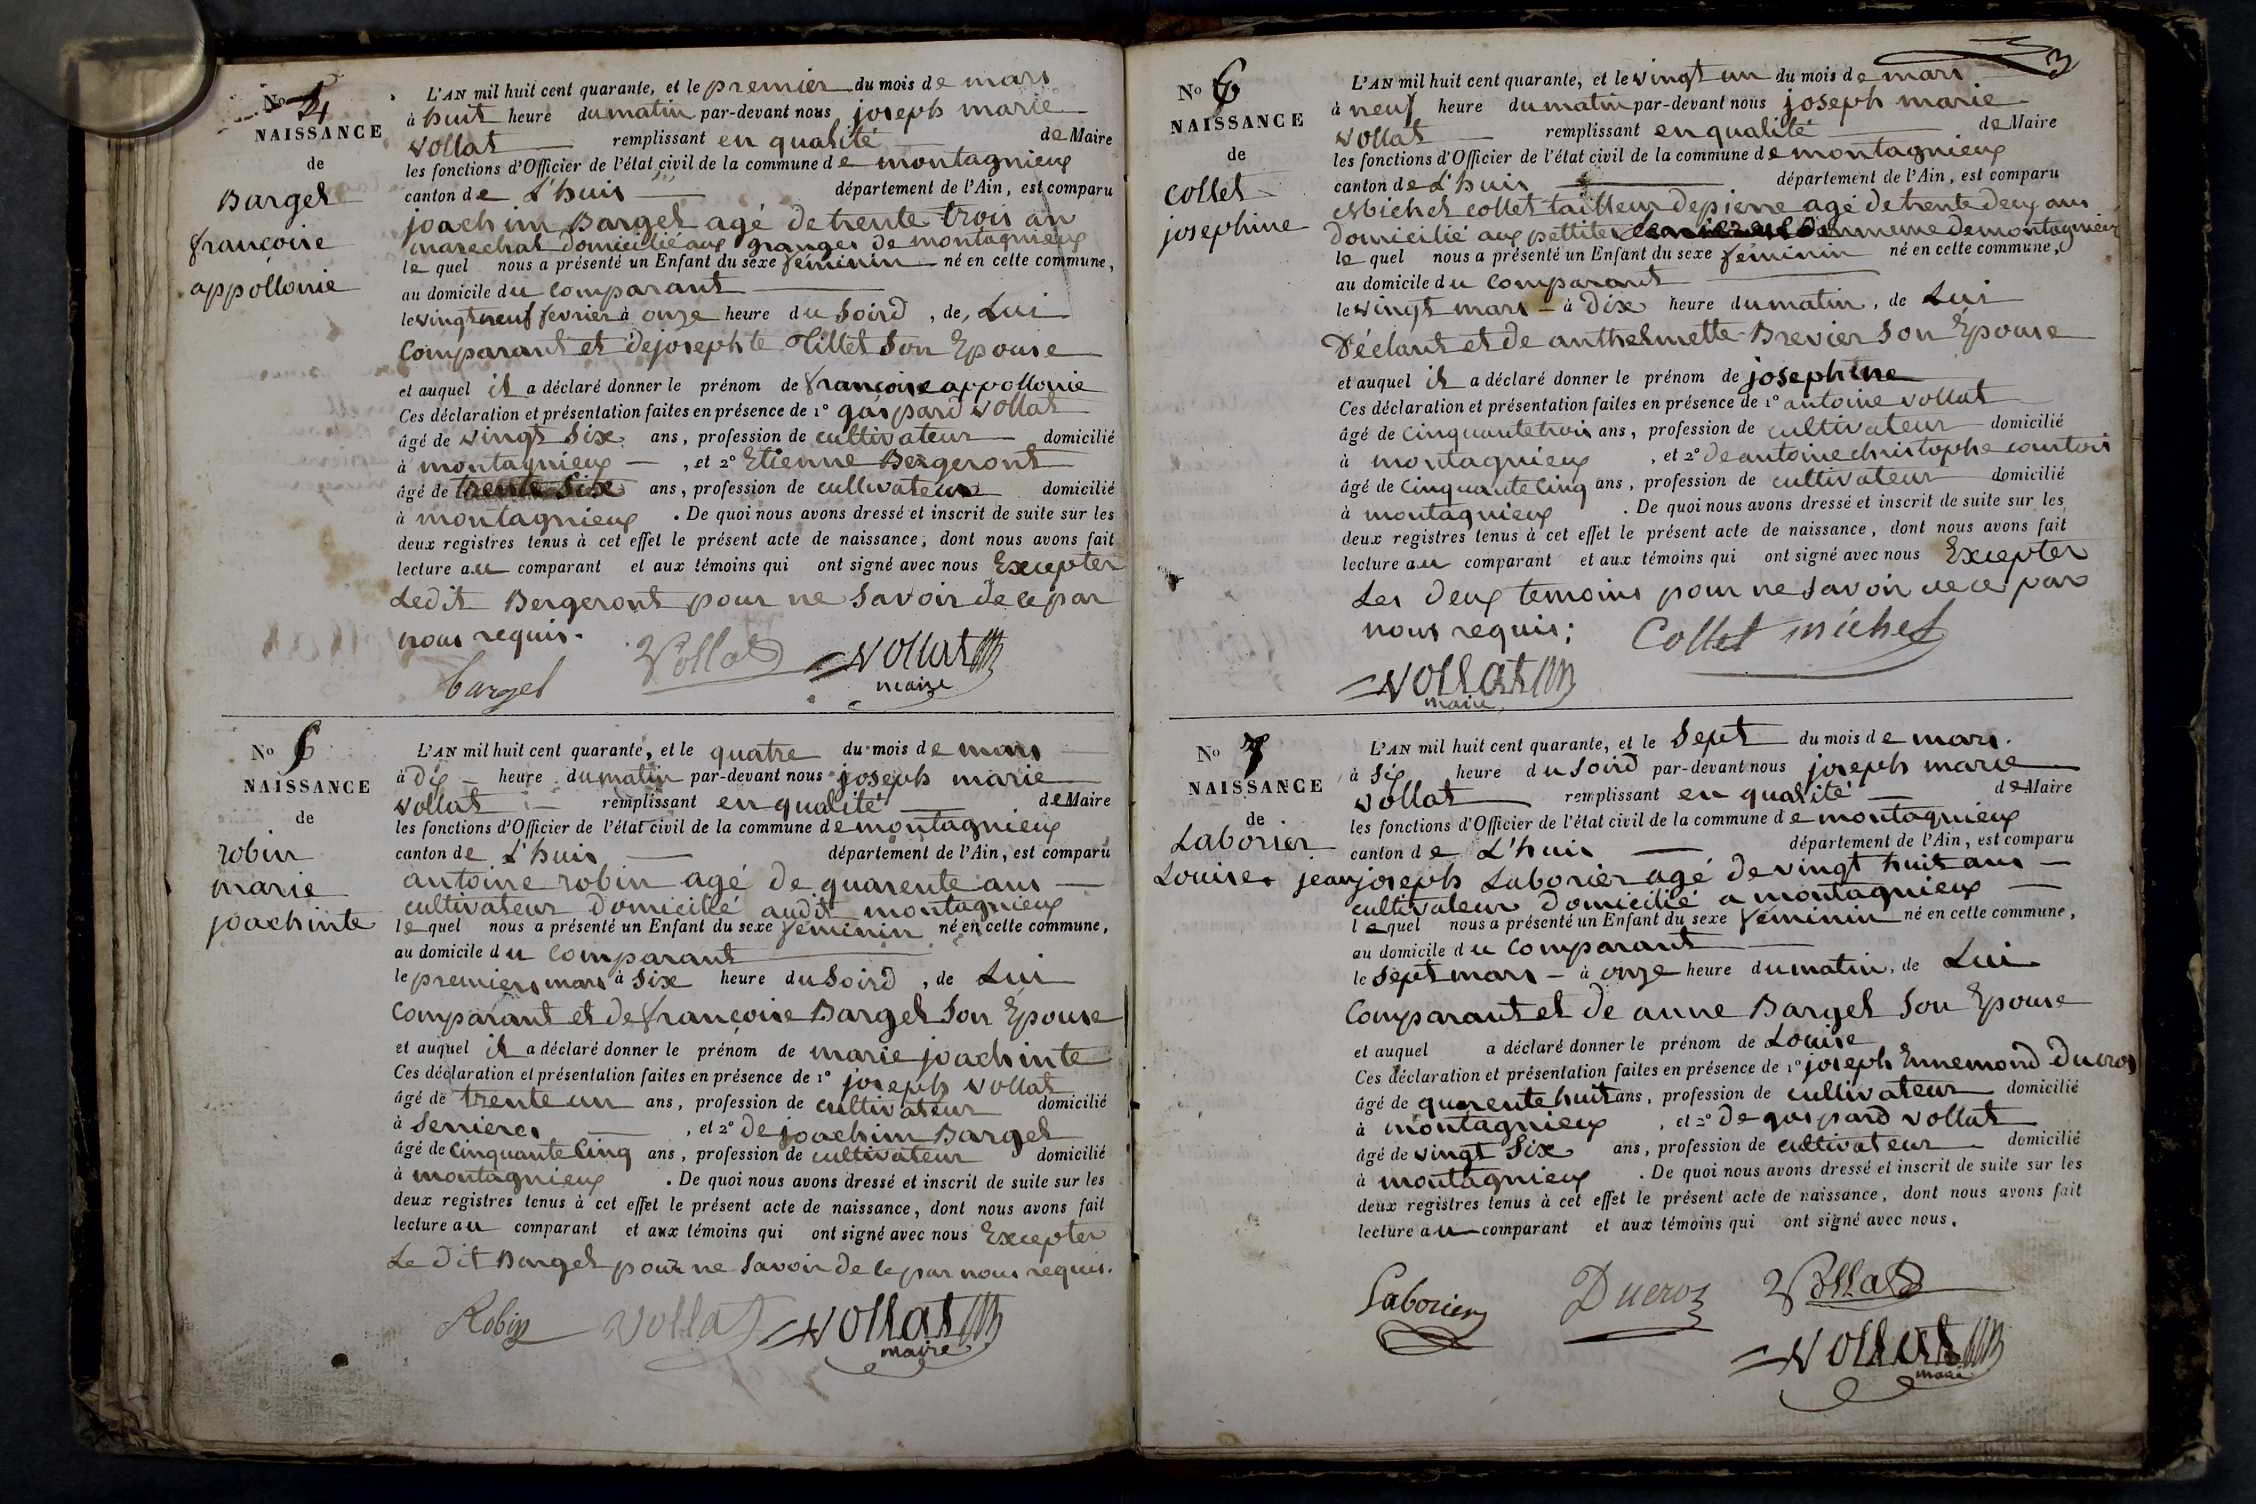 No 4
NAISSANCE
de
Bargel
françoise
appollonie
L'AN mil huit cent quarante, et le premier du mois de mars
à huit heure du matin par-devant nous joseph marie
vollat remplissant en qualité de Maire
les fonctions d'Officier de l'état civil de la commune de montagnieux
canton de L'huis département de l'Ain, est comparu
joachim Bargel agé de trente trois an
marechal domicilié aux granges de montagnieux
le quel nous a présenté un Enfant du sexe féminin né en cette commune,
au domicile du comparant
le vingt neuf fevrier à onze heure du soird, de Lui
comparant et de josephte Tillet son Epouse
et auquel il a déclaré donner le prénom de françoise appollonie
Ces déclaration et présentation faites en présence de 1° gaspard vollat
âgé de vingt six ans, profession de cultivateur domicilié
à montagnieux, et 2° Etienne Bergeront
âgé de trente six ans, profession de cultivateur domicilié
à montagnieux. De quoi nous avons dressé et inscrit de suite sur les
deux registres tenus à cet effet le présent acte de naissance, dont nous avons fait
lecture au comparant et aux témoins qui ont signé avec nous Excepter
Ledit Bergeront pour ne savoir de ce par
nous requis.
bargel Vollat vollat
maire
No 5
NAISSANCE
de
robin
marie
joachinte
L'AN mil huit cent quarante, et le quatre du mois de mars
à dix heure du matin par-devant nous joseph marie
vollat remplissant en qualité de Maire
les fonctions d'Officier de l'état civil de la commune de montagnieux
canton de L'huis département de l'Ain, est comparu
antoine robin agé de quarente ans
cultivateur domicilié audit montagnieux
le quel nous a présenté un Enfant du sexe féminin né en cette commune,
au domicile du comparant
le premiers mars à six heure du soird, de Lui
comparant et de françoise Bargel son Epouse
et auquel il a déclaré donner le prénom de marie joachinte
Ces déclaration et présentation faites en présence de 1° joseph vollat
âgé de trente un ans, profession de cultivateur domicilié
à serrieres, et 2° de joachim Bargel
âgé de cinquante cinq ans, profession de cultivateur domicilié
à montagnieux. De quoi nous avons dressé et inscrit de suite sur les
deux registres tenus à cet effet le présent acte de naissance, dont nous avons fait
lecture au comparant et aux témoins qui ont signé avec nous Excepter
Le dit Bargel pour ne savoir de ce par nous requis.
Robin vollat vollat
maire
3
No 6
NAISSANCE
de
collet
josephine
L'AN mil huit cent quarante, et le vingt un du mois de mars
à neuf heure du matin par-devant nous joseph marie
vollat remplissant en qualité de Maire
les fonctions d'Officier de l'état civil de la commune de montagnieux
canton de L'huis département de l'Ain, est comparu
collet tailleur de pierre agé de trente deux ans
domicilié aux pettites commune de montagnieux
le quel nous a présenté un Enfant du sexe féminin né en cette commune,
au domicile du comparant
le vingt mars à dix heure du matin, de Lui
Déclant et de anthelmette Brevier son Epouse
et auquel il a déclaré donner le prénom de josephine
Ces déclaration et présentation faites en présence de 1° antoine vollat
âgé de cinquante trois ans, profession de cultivateur domicilié
à montagnieux, et 2° de antoine christophe courtois
âgé de cinquante cinq ans, profession de cultivateur domicilié
à montagnieux. De quoi nous avons dressé et inscrit de suite sur les
deux registres tenus à cet effet le présent acte de naissance, dont nous avons fait
lecture au comparant et aux témoins qui ont signé avec nous Excepter
Les deux temoins pour ne savoir de ce par
nous requis;
Collet michel
vollat
maire
No 7
NAISSANCE
de
Laborier
Louise
L'AN mil huit cent quarante, et le sept du mois de mars.
à six heure du soird par-devant nous joseph marie
vollat remplissant en qualité de Maire
les fonctions d'Officier de l'état civil de la commune de montagnieux
canton de L'huis département de l'Ain, est comparu
jean joseph Laborier agé de vingt huit ans
cultivateur domicilié a montagnieux
le quel nous a présenté un Enfant du sexe féminin né en cette commune,
au domicile du comparant
le sept mars à onze heure du matin, de Lui
comparant et de anne Bargel son Epouse
et auquel a déclaré donner le prénom de Louise
Ces déclaration et présentation faites en présence de 1° joseph Ennemond Ducros
âgé de quarente huit ans, profession de cultivateur domicilié
à montagnieux, et 2° de gaspard vollat
âgé de vingt six ans, profession de cultivateur domicilié
à montagnieux. De quoi nous avons dressé et inscrit de suite sur les
deux registres tenus à cet effet le présent acte de naissance, dont nous avons fait
lecture au comparant et aux témoins qui ont signé avec nous.
Laborier Ducros Vollat
vollat
maire